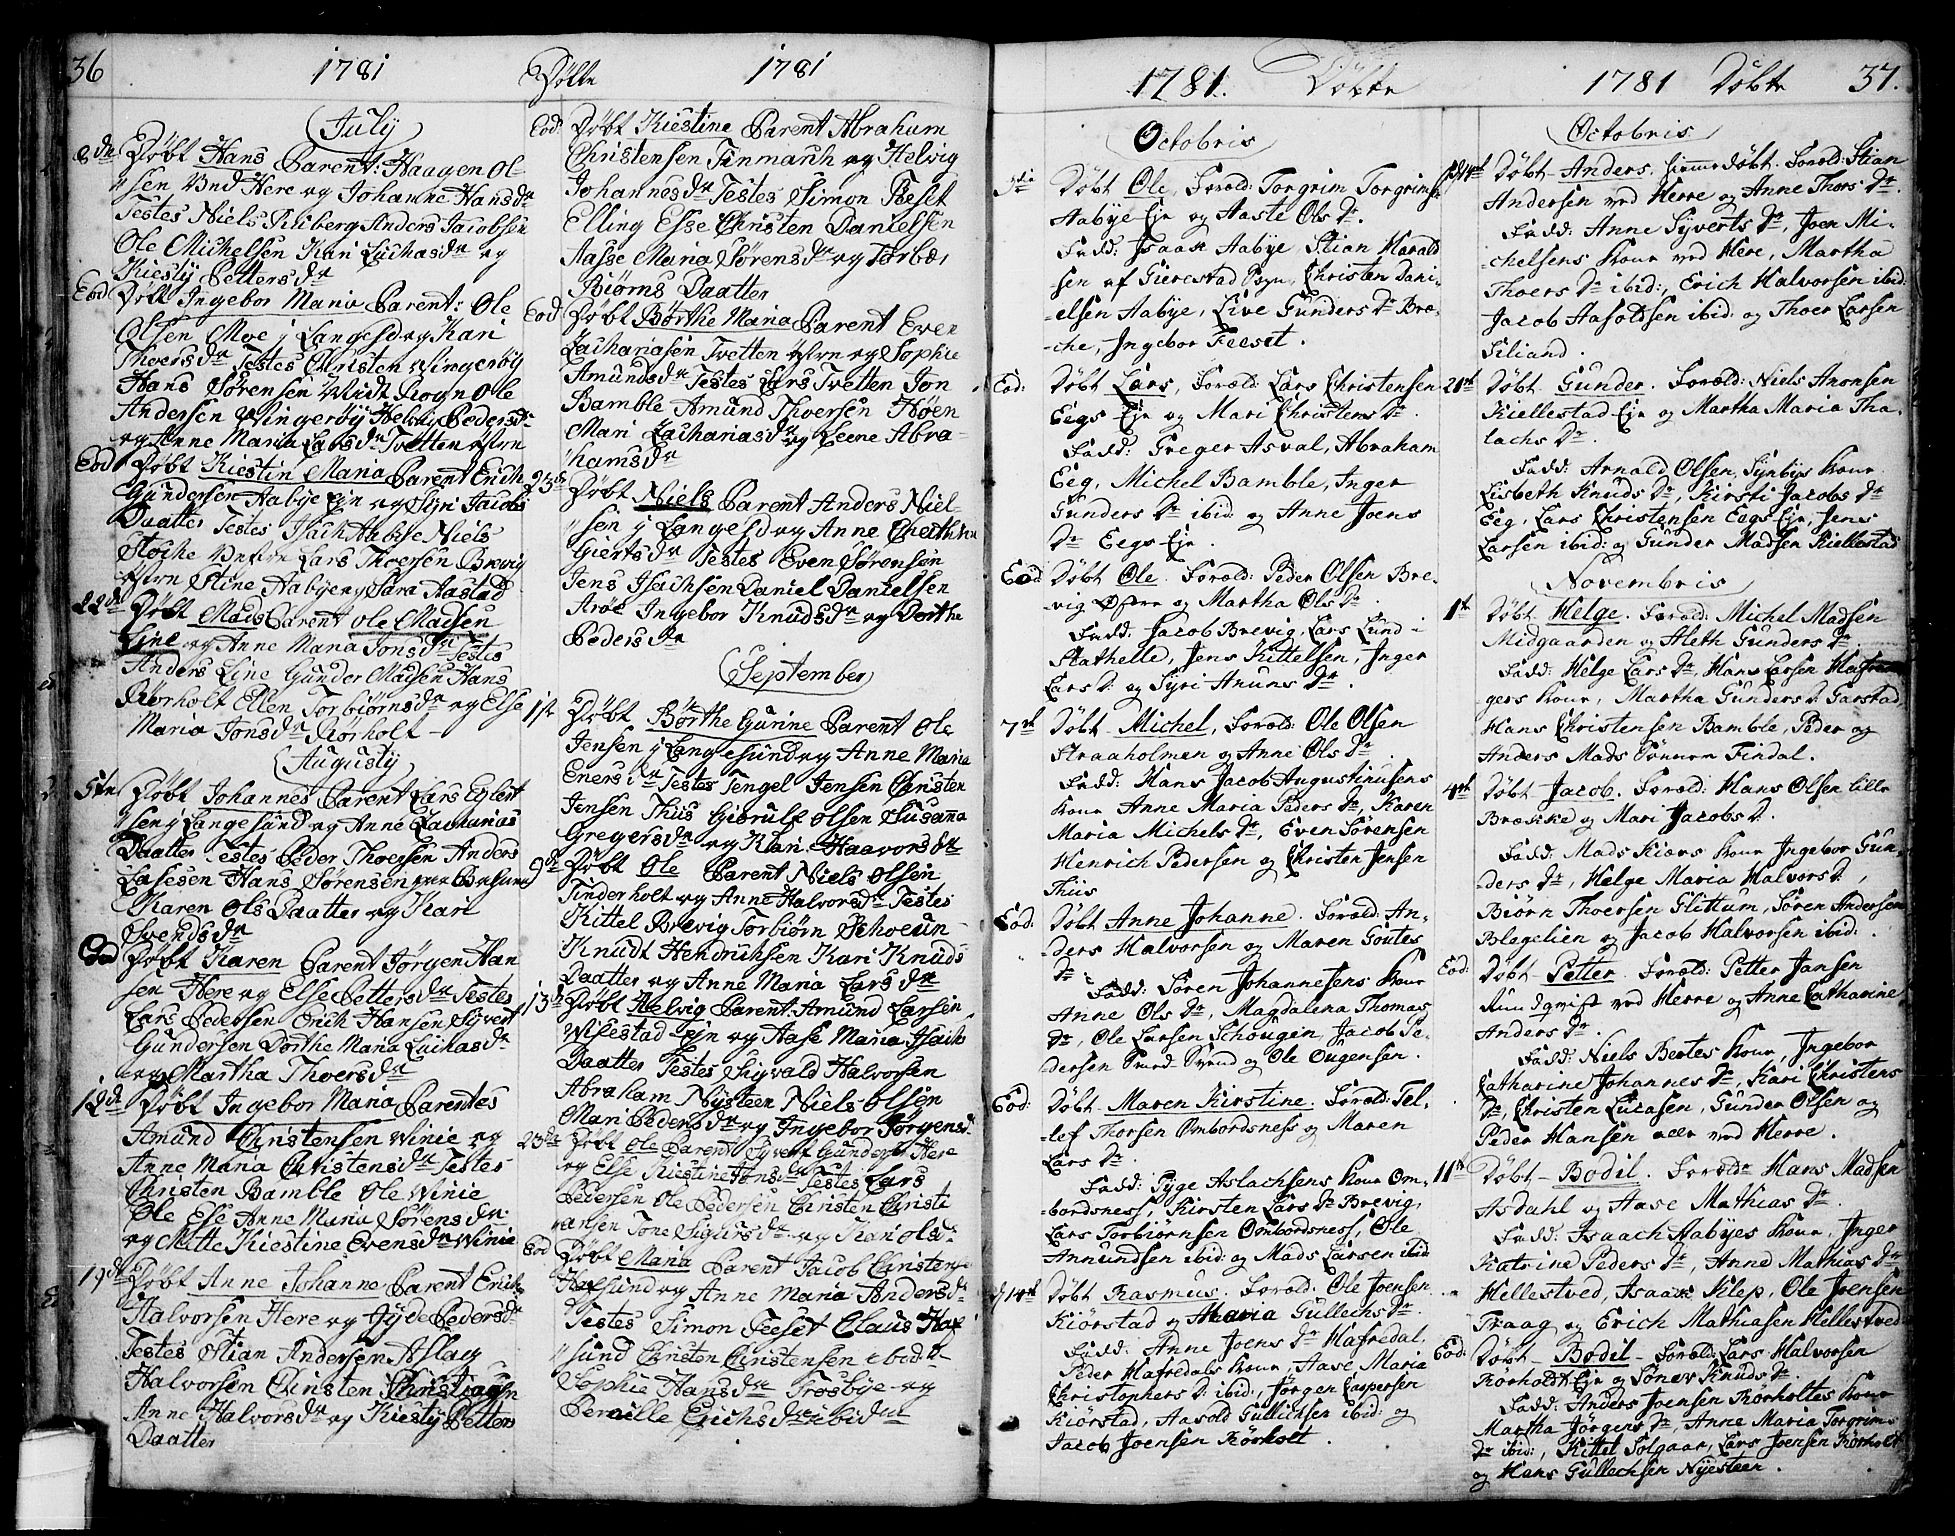 36
1781
Döbte
1781
July
8de Döbt Hans Parent: Haagen Ol-
sen Vnd Here og Johanne Hansdr
Testes Niels Kliberg Anders Jacobsen
Ole Michelsen Kari Luchasdr og
Kiesty Pettersdr
Eod Döbt Ingebor Maria Parent: Ole
Olsen Moe j Langesd og Kari
Thoersdr Testes Christen Wingeröy
Hans Sörensen Ole
Andersen Wingeröy Helvig Pedersdr
og Anne Maria Larsdr Tvetten
Eod Döbt Kiestin Maria Parent Erich
Gundersen Aabye Eje og Siri Jacobs
Daatter Testes Isach Aabye Niels
Lars Thoersen Brevig
Stine Aabye og Sara Aastad
22de Döbt Mads Parent Ole Madsen
Line og Anne Maria Jonsdr Testes
Anders Line Gunder Madsen Hans
Rörholt Ellen Torbiörnsdr og Else
Maria Jonsdr Rörholt
Augusty
5te Döbt Johannes Parent Lars Eylert
sen j Langesund og Anne Zacharias
Daatter Testes Peder Thoersen Anders
Lasesen Hans Sörensen
Karen Ols Daatter og Kari
Svendsdr
Eod Döbt Karen Parent Jörgen Han
sen Here og Else Pettersdr Testes
Lars Pedersen Erich Hansen Syvert
Gundersen Dorthe Maria Luchasdr
og Martha Thoersdr
12de Döbt Ingebor Maria Parentes
Amund Christensen Winie og
Anne Maria Christensdr Testes
Christen Bamble Ole Winie
Ole Ese Anne Maria Sörensdr
og Mette Kiestine Evensdr Winie
19de Döbt Anne Johanne Parent Erich
Halvorsen Here og Gyde Pedersdr
Testes Stian Andersen Aslag
Halvorsen Christen Christiansen
Anne Halvorsdr og Kiesty Petters
Daatter
Eod: Döbt Kiestine Parent Abraham
Christensen Tinmarch og Helvig
Johannesdr Testes Simon Feset
Elling Esse Christen Danielsen
Aasse Maria Sörensdr og Torbor
Biörns Daatter
Eod Döbt Börthe Maria Parent Even
Zachariasen Tvetten og Sophie
Amundsdr Testes Lars Tvetten Jon
Bamble Amund Thoersen Höen
Mari Zachariasdr og Leene Abra-
hamsdr
25de Döbt Niels Parent Anders Niel-
sen j Langesd og Anne
Giertsdr Testes Even Sörensen
Jens Isachsen Daniel Danielsen
Aröe Ingebor Knudsdr og Dorthe
Pedersdr
September
1st Döbt Börthe Gurine Parent Ole
Jensen j Langesund og Anne Maria
Enersdr Testes Tengel Jensen Christen
Jensen Thus Gierulf Olsen Susana
Gregersdr og Kari Haavorsdr
9de Döbt Ole Parent Niels Olsen
Tinderholt og Anne Halvorsdr Testes
Kittel Brevig Torbiörn Schoeun-
Knudt Hendrichsen Kari Knuds
Daatter og Anne Maria Larsdr
13de Döbt Helvig Parent: Amund Larsen
Wissestad Eje og Aase Maria Isachs
Daatter Testes Sigvald Halvorsen
Abraham Nysteen Niels Olsen
Mari Pedersdr og Ingebor Jörgensd
23de Döbt Ole Parent Syvert Gunders: Here
og Else Kiestine Jonsdr Testes Lars
Pedersen Ole Pedersen Christen Christi
ansen Tone Sigursdr og Kari Olsdr
Eod Döbt Maria Parent Jacob Christense
Hafsund og Anne Maria Andersdr
Testes Simon Feeset Claus Haf
sund Christen Christensen ibid:
Sophie Hansdr Trosbye og
Pernille Erichsdr ibidm
1781. Döbte
1781 Döbte 37.
Octobris
Döbt Ole, Foræld: Torgrim Torgrims:
Aabye Eje og Aaste Ols Dr.
Fadd: Isaak Aabye, Stian Harald
sen af Gierestad Psgn, Christen Dani-
elsen Aabye, Live Gunders Dr Bre-
che, Ingebor Feeset.
Eod: Döbt Lars, Foræld: Lars Christensen
Eegs Eje og Mari Christens Dr.
Fadd: Greger Asval, Abraham
Eeg, Michel Bamble, Inger
Gunders Dr ibid: og Anne Joens
Dr Eegs Eje.
Eod Döbt Ole. Foræld: Peder Olsen Bre-
vig Östre og Martha Ols Dr.
Fadd: Jacob Brevig, Lars Lund i
Stathelle, Jens Kittelsen, Inger
Lars D: og Syri Anuns Dr.
7de Döbt Michel, Foræld: Ole Olsen
Straaholmen og Anne Ols Dr.
Fadd: Hans Jacob Augustinusens
Kone Anne Maria Peders Dr, Karen
Maria Michels Dr, Even Sörensen
Henrich Pedersen og Christen Jensen
Thus
Eod: Döbt Anne Johanne. Foræld: An-
ders Halvorsen og Maren Goutes
Dr.
Fadd: Sören Johannesens Kone
Anne Ols Dr, Magdalena Thomas
Dr, Ole Larsen Schougen, Jacob Pe-
dersen Smed Svend og Ole Ougensen.
Eod: Döbt Maren Kirstine. Foræld: Tel-
lef Thorsen Ombordsness og Maren
Lars Dr.
Fadd: Tyge Aslachsens Kone Om-
bordsness, Kirsten Lars Dr Brevig,
Lars Torbiörnsen Ombordsness, Ole
Annundsen ibid: og Mads Larsen ibid
d 14de Döbt Rasmus. Foræld: Ole Joensen
Kiörstad og Maria Gullechs Dr.
Fadd: Anne Joens Dr Hafredal.
Peder Hafredals Kone, Aase Maria
Christophers D: ibid:, Jörgen Caspersen
Kiörstad, Aasold Gullichsen ibid: og
Jacob Joensen Rörholt.
Octobris
d 14de Döbt Anders. hiemmedöbt. Foræld: Stian
Andersen ved Herre og Anne Thors Dr.
Fadd: Anne Syverts Dr, Joen Mi-
chelsens Kone ved Here, Martha
Thoers Dr ibid:, Erich Halvorsen ibid:
Jacob Aasoldsen ibid: og Thoer Larsen
Siliand.
21de Döbt Gunder. Foræld: Niels Anonsen
Kiellestad Eje og Martha Maria Tha-
lachs Dr.
Fadd: Arnald Olsen, Synbys Kone
Lisbeth Knuds Dr, Kirsti Jacobs Dr
Eeg, Lars Christensen Eegs Eje, Jens
Larsen ibid: og Gunder Madsen Kiellestad
Novembris
1ste Döbt Helge. Foræld: Michel Madsen
Midgaarden og Aleth Gunders Dr
Fadd: Helge Lars Dr, Hans Larsen
gers Kone, Martha Gunders D. Garstad
Hans Christensen Bamble, Peder og
Anders Mads Sönner Findal.
4de Döbt Jacob. Foræld: Hans Olsen lille
Brække og Mari Jacobs D.
Fadd: Mads Kiærs Kone Ingebor Gun-
ders Dr, Helge Maria Halvors D.,
Biörn Thoersen Glittum, Sören Andersen
Blegelien og Jacob Halvorsen ibid:.
Eod: Döbt Petter. Foræld: Petter Jansen
ved Herre og Anne Catharine
Anders Dr.
Fadd: Niels Bertes Kone, Ingebor
Catharine Johannes Dr, Kari Christens
Dr, Christen Lucasen, Gunder Olsen og
Peder Hansen alle ved Herre.
11te Döbt Bodil. Foræld: Hans Madsen
Asdahl og Aase Mathias Dr.
Fadd: Isaach Aabyes Kone, Inger
Katrine Peders Dr, Anne Mathias Dr
Hellestved, Isaak Klep, Ole Joensen
Traag og Erich Mathiasen Hellestved
Eod: Döbt Bodil. Foræld: Lars Halvorsen
Rörholt Eje og Sönev Knuds Dr.
Fadd: Anders Joensen Rörholtes Kone
Martha Jörgens Dr, Anne Maria Torgrims
Dr ibid:, Kittel Solgaar, Lars Joensen Rörholt
og Hans Gullechsen Nysteen.